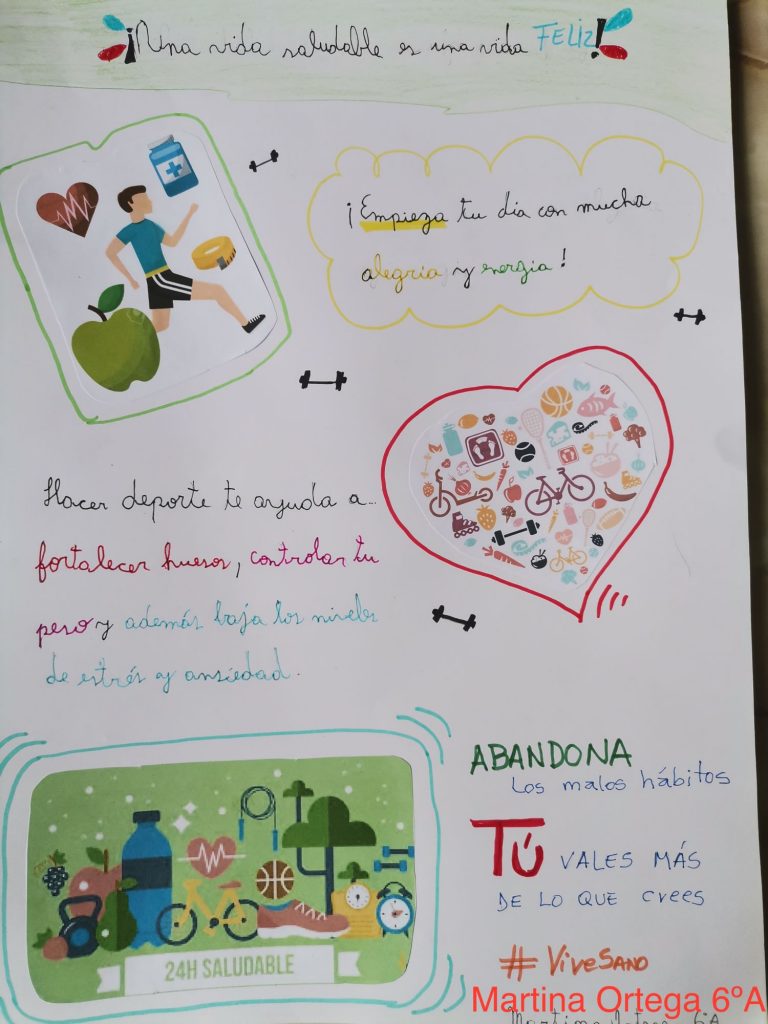 ¡Una vida saludable es una vida FELIZ!
¡Empieza tu día con mucha
alegría y energía!
Hacer deporte te ayuda a...
fortalecer huesos, controlar tu
peso y además baja los niveles
de estrés y ansiedad.
24H SALUDABLE
ABANDONA
Los malos hábitos
TÚ VALES MÁS
DE LO QUE CREES
#ViveSano
Martina Ortega 6ºA
Martina Ortega 6ºA